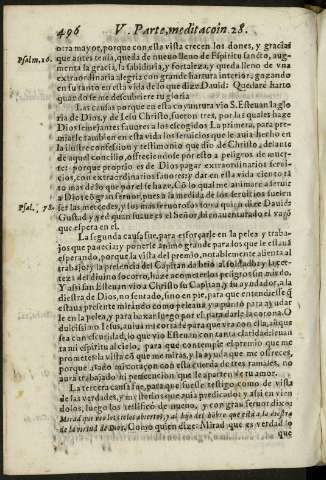 496 V. Parte, meditacoin 28.
otra mayor, porque con esta vista crecen los dones, y gracias
Psalm. 16. que antes tenia, queda de nuevo lleno de Espiritu sancto, aug-
menta la gracia, la sabiduria, y fortaleza, y queda lleno de vna
extraordinaria alegria con grande hartura interior, gozando
en su tanto en esta vida de lo que dize Dauid: Quedarè harto
quando se me descubriere tu gloria.
Las causas porque en esta coyuntura vio S. Esteuan la glo
ria de Dios, y de Iesu Christo, fueron tres, por las quales haze
Dios semejantes fauores a los escogidos. La primera, para pre-
miarle tambien en esta vida los seruicios que le auia hecho en
la illustre confession y testimonio que dio de Christo, delante
de aquel concilio, ofreciendose por ello a peligros de muer-
te: porque proprio es de Dios pagar extraordinarios serui-
cios, con extraordinarios fauores: y dar en esta vida ciento tã
to mas de lo que por el se haze. Cõ lo qual me animarè a seruir
a Dios cõ gran feruor, pues a la medida de los seruicios suelen
Psal. ser las mercedes, y los mas feruorosos son a quien dize Dauid:
Gustad y ved quan suaue es el Señor, bienauenturado el varõ
que espera en el.
La segunda causa fue, para esforçarle en la pelea y traba-
jos que padecia, y ponerle animo grande para los que le estauã
esperando, porque la vista del premio, notablemente alienta al
trabajo: y la presencia del Capitan da brio al soldado: y la cer-
teza del diuino socorro, haze acometer los peligros sin miedo.
Y assi san Esteuan vio a Christo su Capitan, y su ayudador, a la
diestra de Dios, no sentado, sino en pie, para que entendiesse q̃
estaua presente mirando como peleaua, y a punto para ayudar
le en la pelea, y para baxar luego por el, para darle la corona. O
dulcissimo Iesus, auiua mi coraçõ para que vea con
sea con escuridad, lo que vio Esteuan con tanta claridad: leuanta
mi espiritu al cielo, para que contemple el premio que me
prometes: la vista cõ que me miras, y la ayuda que me ofreces,
porque atado mi coraçon con esta cuerda de tres ramales, no
aurà trabajo, ni persecucion que le aparten de tu amor.
La tercera causa fue, para que fuesse testigo como de vista
de las verdades, y mysterios que auia predicado: y assi en vien
dolos, luego los testificò de nueuo, y con gran feruor dixo:
Mirad que veo los cielos abiertos, y al hijo del hõbre que està a la diestra
de la virtud de Dios. Como quien dize: Mirad que es verdad lo
que